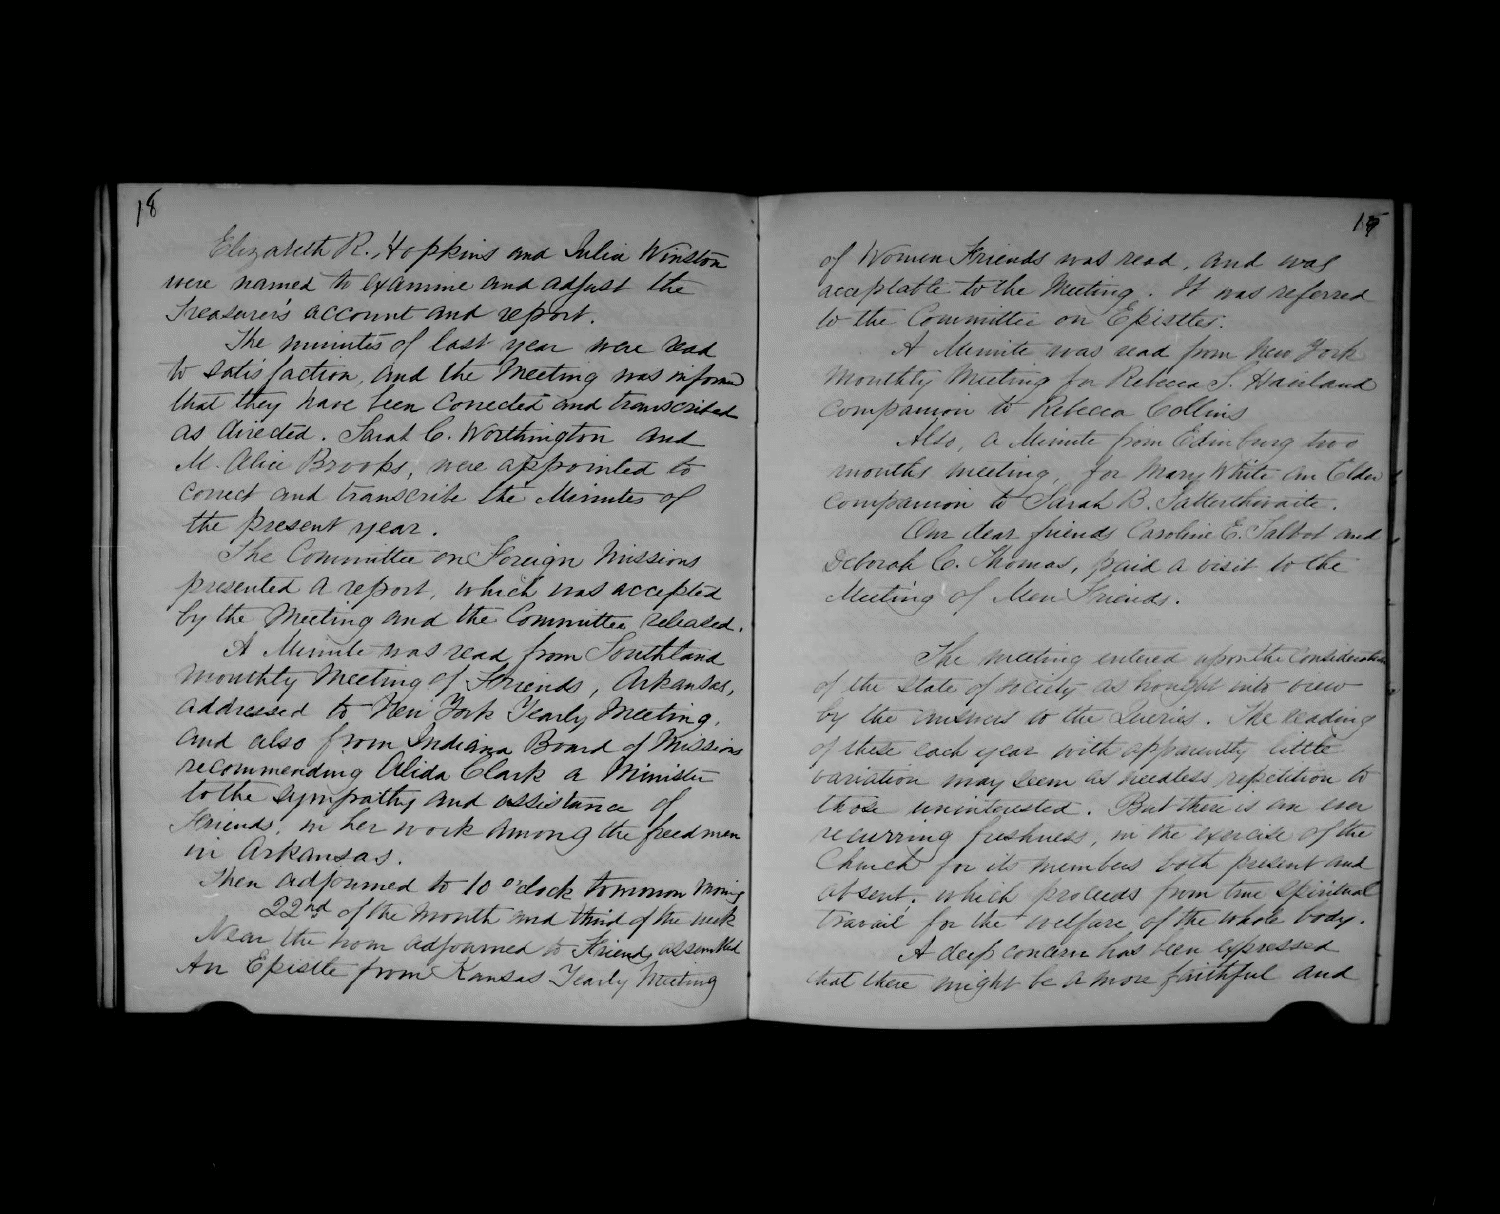 18
Elizabeth R. Hopkins and Julia Winston
were named to examine and adjust the
Treasurer's account and report.
The minutes of last year were read
to satisfaction, and the Meeting was informed
that they have been corrected and transcribed
as directed. Sarah C. Worthington and
M. Alice Brooks, were appointed to
correct and transcribe the Minutes of
the present year.
The Committee on Foreign Missions
presented a report, which was accepted
by the Meeting and the Committee released.
A Minute was read from Southland
Monthly Meeting of Friends, Arkansas,
addressed to New York Yearly Meeting,
and also from Indiana Board of Missions
recommending Alida Clark a Minister
to the sympathy and assistance of
Friends, in her work among the freedmen
in Arkansas.
Then adjourned to 10 o'clock tomorrow morning
22nd of the Month and third of the week
Near the hour adjourned to Friends assembled
An Epistle from Kansas Yearly Meeting
19
of Women Friends was read, and was
acceptable to the Meeting. It was referred
to the Committee on Epistles.
A Minute was read from New York
Monthly Meeting for Rebecca S. Haviland
companion to Rebecca Collins
Also, a Minute from Edinburg two
months meeting, for Mary White an Elder
companion to Sarah B. Satterthwaite.
Our dear friends Caroline E. Talbot and
Deborah C. Thomas, paid a visit to the
Meeting of Men Friends.
The meeting entered upon the consideration
of the state of society as brought into view
by the answers to the Queries. The reading
of these each year with apparently little
variation may seem as needless repetition to
those uninterested. But there is an ever
recurring freshness, in the exercise of the
Church for its members both present and
absent, which proceeds from true spiritual
travail for the welfare of the whole body.
A deep concern has been expressed
that there might be a more faithful and